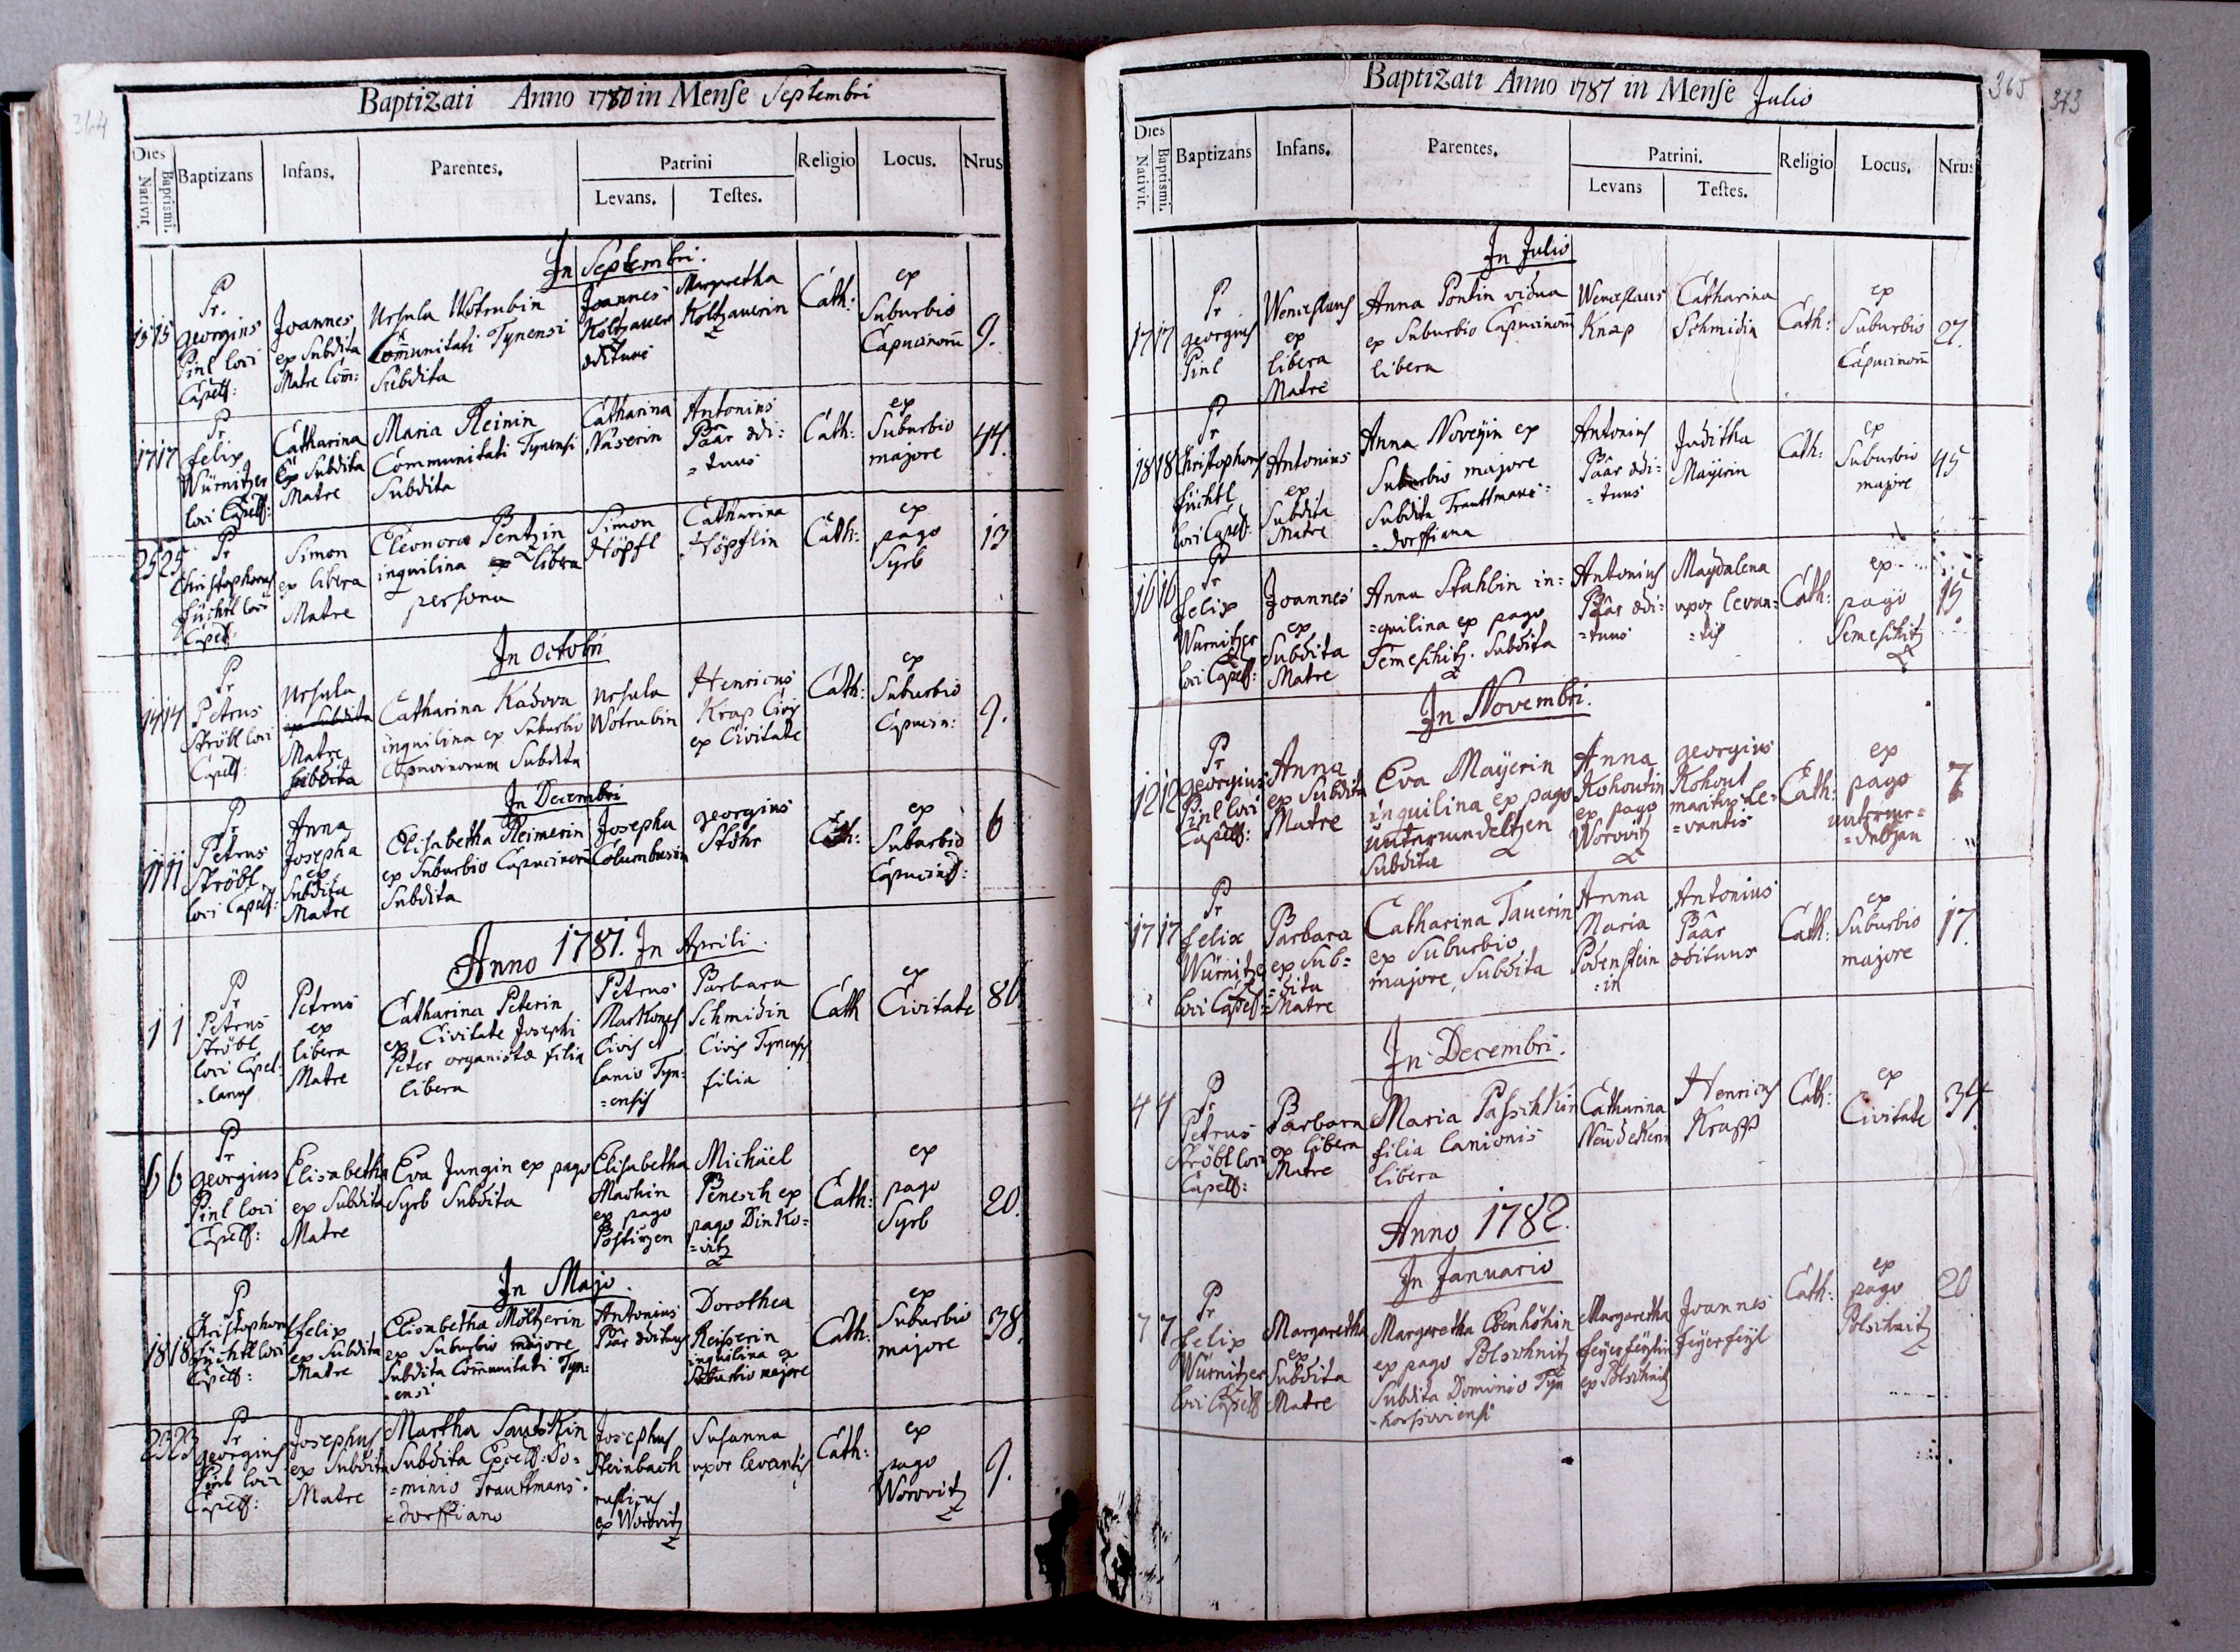 364
Baptizati Anno 1780 in Mense Septembri
Dies
Nativit.
Baptismi.
Baptizans
Infans.
Parentes.
Patrini
Levans.
Testes.
Religio
Locus.
Nrus
In Septembri.
15 15
Pr.
Georgius
Pinl loci
Capell:
Joannes
ex Subdita
Matre
Ursula Wotrubin
Communitati Tynensi
Subdita
Joannes
Koltzauer
ædituus
Margaretha
Koltzauerin
Cath:
ex
Suburbio
Capucinorum
9.
17 17
Pr
Felix
Würnitzer
loci Capell:
Catharina
ex Subdita
Matre
Maria Reinin
Communitati Tynensi
Subdita
Catharina
Naserin
Antonius
Päar ædi=
=tuus
Cath:
ex
Suburbio
majore
44.
25 25
Pr
Christophorus
Füchtl loci
Capell:
Simon
ex libera
Matre
Eleonora Pentzin
inquilina ex libera
persona
Simon
Höpfl
Catharina
Höpflin
Cath:
ex
pago
Syrb
13
In Octobri
14 14
Pr
Petrus
Ströbl loci
Capell:
Ursula
ex Subdita
Matre
Subdita
Catharina Kadova
inquilina ex Suburbio
Capucinorum Subdita
Ursula
Wotrubin
Henricus
Krap Civis
ex Civitate
Cath:
ex
Suburbio
Capucin:
9.
In Decembri
11 11
Pr
Petrus
Ströbl
loci Capell:
Anna
Josepha
ex
Subdita
Matre
Elisabetha Reimerin
ex Suburbio Capucinorum
Subdita
Josepha
Columbusin
Georgius
Stöhr
Cath:
ex
Suburbio
6
Anno 1781. In Aprili.
1 1
Pr
Petrus
Ströbl
loci Capel=
=lanus
Petrus
ex
libera
Matre
Catharina Peterin
ex Civitate Josephi
Peter organistæ filia
libera
Petrus
Markones
Civis et
lanio Tyn=
=ensis
Barbara
Schmidin
Civis Tynensis
filia
Cath
ex
Civitate
80
6 6
Pr
Georgius
Pinl loci
Capell:
Elisabetha
ex Subdita
Matre
Eva Jungin ex pago
Syrb Subdita
Elisabetha
Mashin
ex pago
Postirzen
Michäel
Benesch ex
pago Dinko=
=vitz
Cath:
ex
pago
Syrb
20.
In Majo.
18 18
Pr
Christophorus
Füchtl loci
Capell:
Felix
ex Subdita
Matre
Elisabetha Möltzerin
ex Suburbio majore
Subdita Communitati Tyn=
=ensi
Antonius
Päar ædituus
Dorothea
Reisserin
inquilina ex
Suburbio majore
Cath:
ex
Suburbio
majore
38.
23 23
Pr
Georgius
Pinl loci
Capell:
Josephus
ex Subdita
Matre
Martha
Subdita Excell: Do=
=minio Trauttmans=
=dorffiano
Josephus
Steinbach
rusticus
ex Worovitz
Susanna
uxor levantis
Cath:
ex
pago
Worovitz
9.
365
373
Baptizati Anno 1781 in Mense Julio
Dies
Nativit.
Baptismi.
Baptizans
Infans.
Parentes.
Patrini.
Levans
Testes.
Religio
Locus.
Nrus
In Julio
17 17
Pr
Georgius
Pinl
Wenceslaus
ex
libera
Matre
Anna Pontin vidua
ex Suburbio Capucinorum
libera
Wenceslaus
Knap
Catharina
Schmidin
Cath:
ex
Suburbio
Capucinorum
27.
18 18
Pr
Christophorus
Füchtl
loci Capell:
Antonius
ex
Subdita
Matre
Anna Noveyin ex
Suburbio majore
Subdita Trauttmans=
=dorffiana
Antonius
Päar ædi=
=tuus
Juditha
Mayerin
Cath:
ex
Suburbio
majore
45
16 16
Pr
Felix
Würnitzer
loci Capell:
Joannes
ex
Subdita
Matre
Anna Stahlin in=
=quilina ex pago
Semeschitz. Subdita
Antonius
Päar ædi=
=tuus
Magdalena
uxor levan=
=tis
Cath:
ex
pago
Semeschitz
15
In Novembri.
12 12
Pr
Georgius
Pinl loci
Capell:
Anna
ex Subdita
Matre
Eva Mayerin
inquilina ex pago
unterrundeltzen
Subdita
Anna
Kohoutin
ex pago
Worovitz
Georgius
Kohout
maritus le=
=vantis
Cath:
ex
pago
7
17 17
Pr
Felix
Würnitzer
loci Capell=
Barbara
ex Sub=
=dita
Matre
Catharina Tauerin
ex Suburbio
majore, Subdita
Anna
Maria
Podenstein
=in
Antonius
Päar
ædituus
Cath:
ex
Suburbio
majore
17.
In Decembri.
4 4
Pr
Petrus
Ströbl loci
Capell:
Barbara
ex libera
Matre
Maria Passchkin
filia lanionis
libera
Catharina
Neudekerin
Henricus
Krapp
Cath:
ex
Civitate
34
Anno 1782.
In Januario
7 7
Pr
Felix
Würnitzer
loci Capell
Margaretha
ex
Subdita
Matre
Margaretha Ebenhöhin
ex pago Polschnitz
Subdita Dominio Tyn
=horssoviensi
Margaretha
Feyerfeylin
ex Polschnitz
Joannes
Feyerfeyl
Cath:
ex
pago
Polschnitz
20